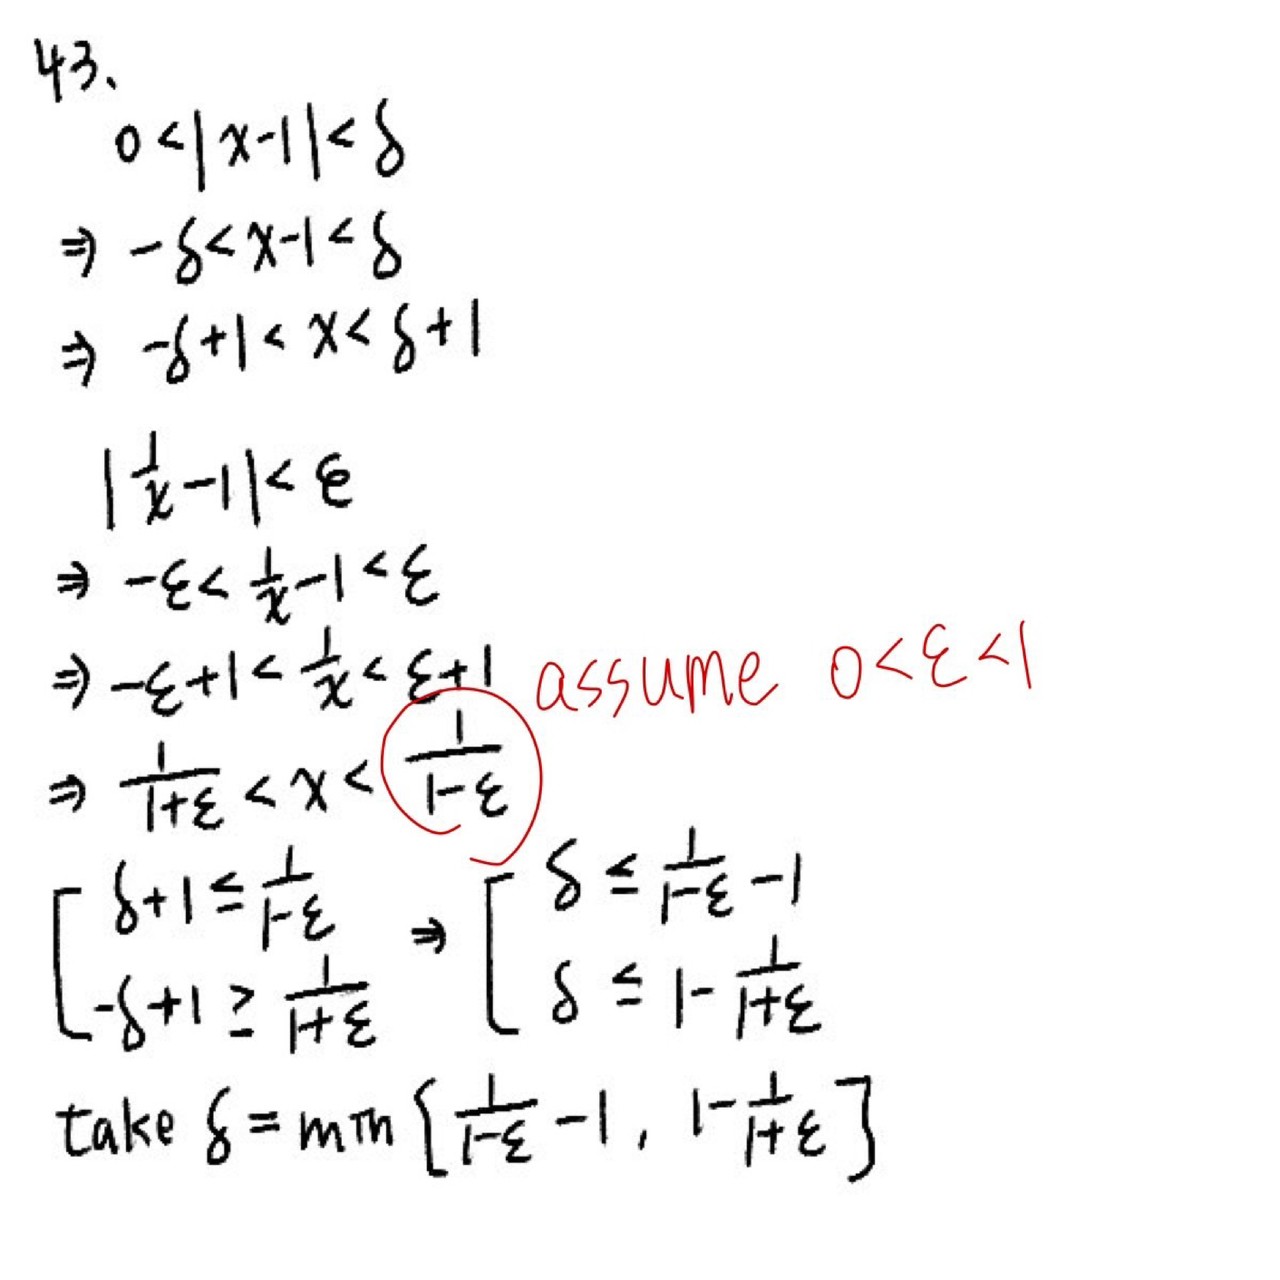 43.
0<|x-1|<δ
⇒ -δ<x-1<δ
⇒ -δ+1<x<δ+1
|1/x-1|<ε
⇒ -ε<1/x-1<ε
⇒ -ε+1<1/x<ε+1 assume 0<ε<1
⇒ 1/(1+ε)<x<1/(1-ε)
[ δ+1≤1/(1-ε) ⇒ [ δ≤1/(1-ε)-1
-δ+1≥1/(1+ε) δ≤1-1/(1+ε)
take δ=min{1/(1-ε)-1, 1-1/(1+ε)}